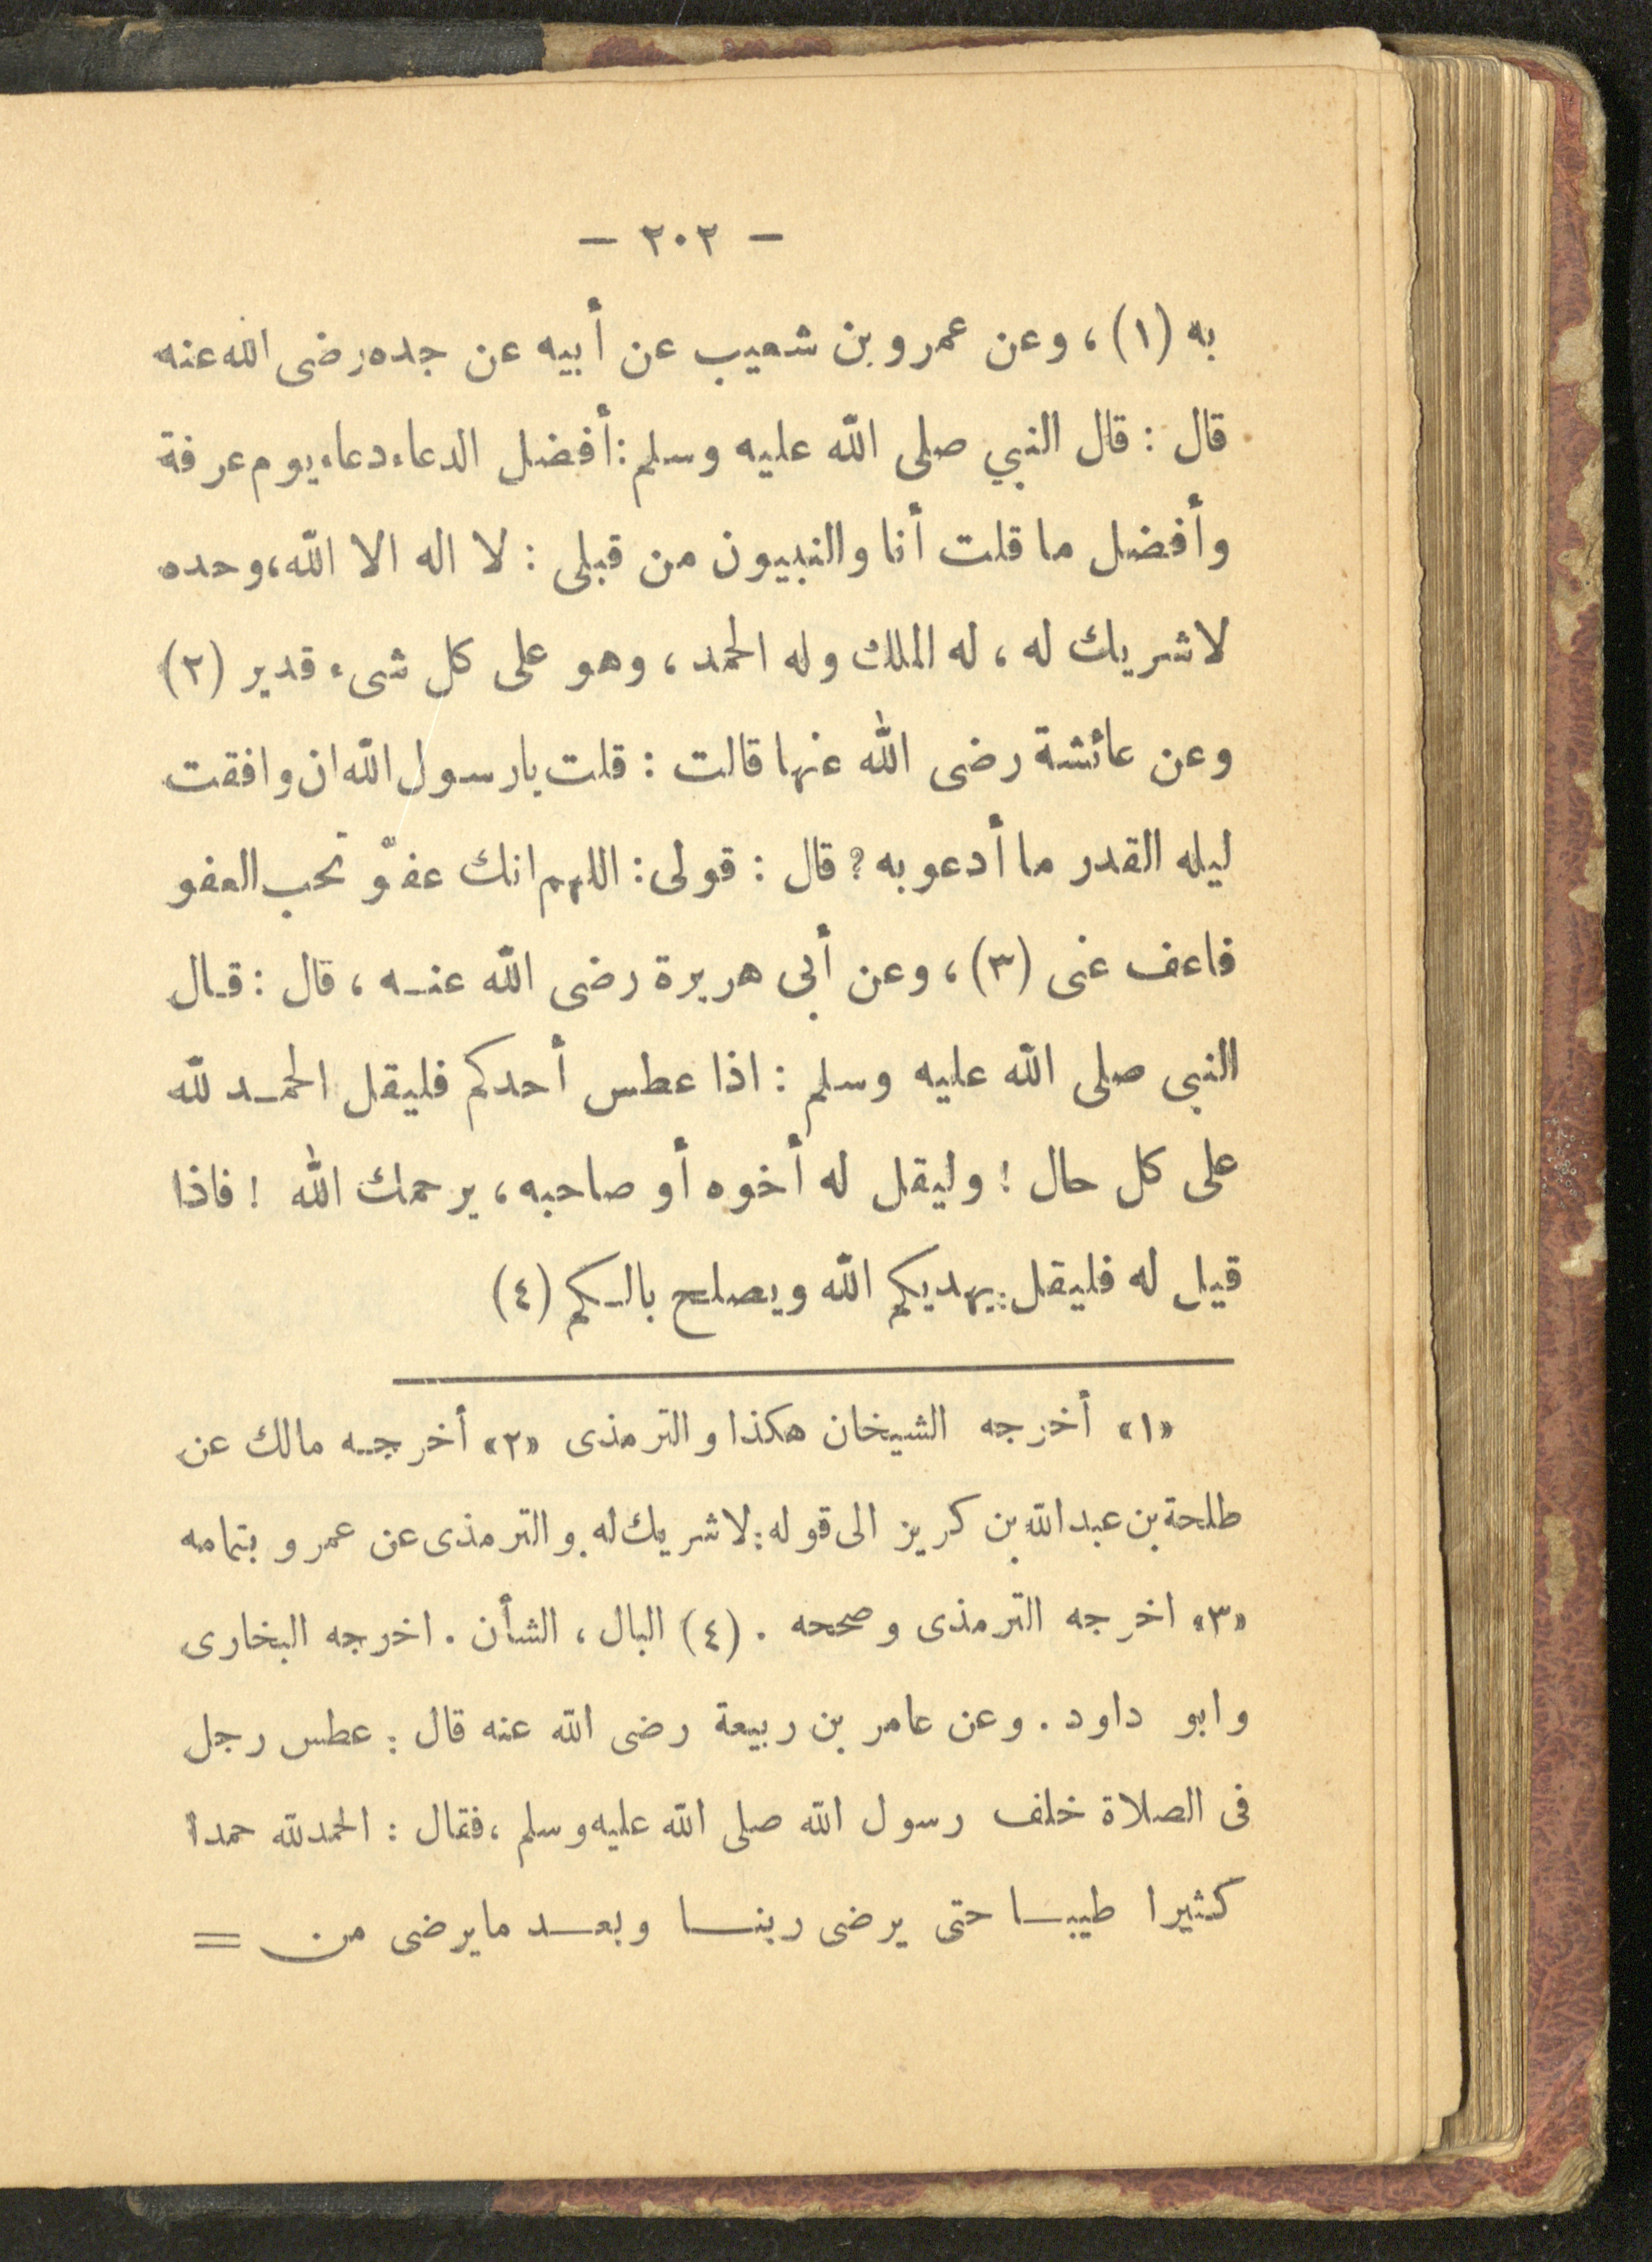 — ٢٠٢ —
به (١)، وعن عمرو بن شعيب عن أبيه عن جده رضى الله عنه
قال : قال النبي صلى الله عليه وسلم : أفضل الدعاء دعاء يوم عرفة
وأفضل ما قلت أنا والنبيون من قبلى : لا اله الا الله، وحده
لا شريك له ، له الملك وله الحمد ، وهو على كل شىء قدير (٢)
وعن عائشة رضى الله عنها قالت : قلت يارسول الله ان وافقت
ليله القدر ما أدعو به ؟ قال : قولى : اللهم انك عفوّ تحب العفو
فاعف عنى (٣)، وعن أبى هريرة رضى الله عنه ، قال : قال
النبى صلى الله عليه وسلم : اذا عطس أحدكم فليقل الحمد لله
على كل حال ! وليقل له أخوه أو صاحبه ، يرحمك الله ! فاذا
قيل له فليقل : يهديكم الله ويصلح بالكم (٤)
«١» أخرجه الشيخان هكذا والترمذى «٢» أخرجه مالك عن
طلحة بن عبد الله بن كريز الى قوله : لا شريك له . والترمذى عن عمرو بتمامه
«٣» اخرجه الترمذى وصححه . (٤) البال ، الشأن . اخرجه البخارى
وابو داود . وعن عامر بن ربيعة رضى الله عنه قال : عطس رجل
فى الصلاة خلف رسول الله صلى الله عليه وسلم ، فقال : الحمد لله حمدا
كثيرا طيبا حتى يرضى ربنا وبعد مايرضى من =